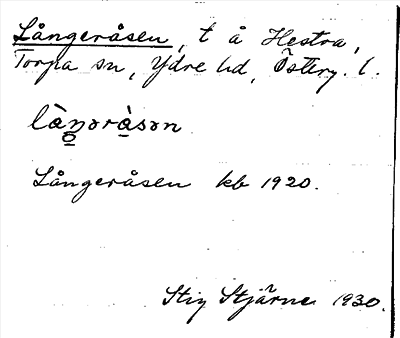 Långeråsen, t å Hestra,
Torpa sn, Ydre hd, Österg. l.
làŋəràsən
Långeråsen kb 1920.
Stig Stjärne 1930.